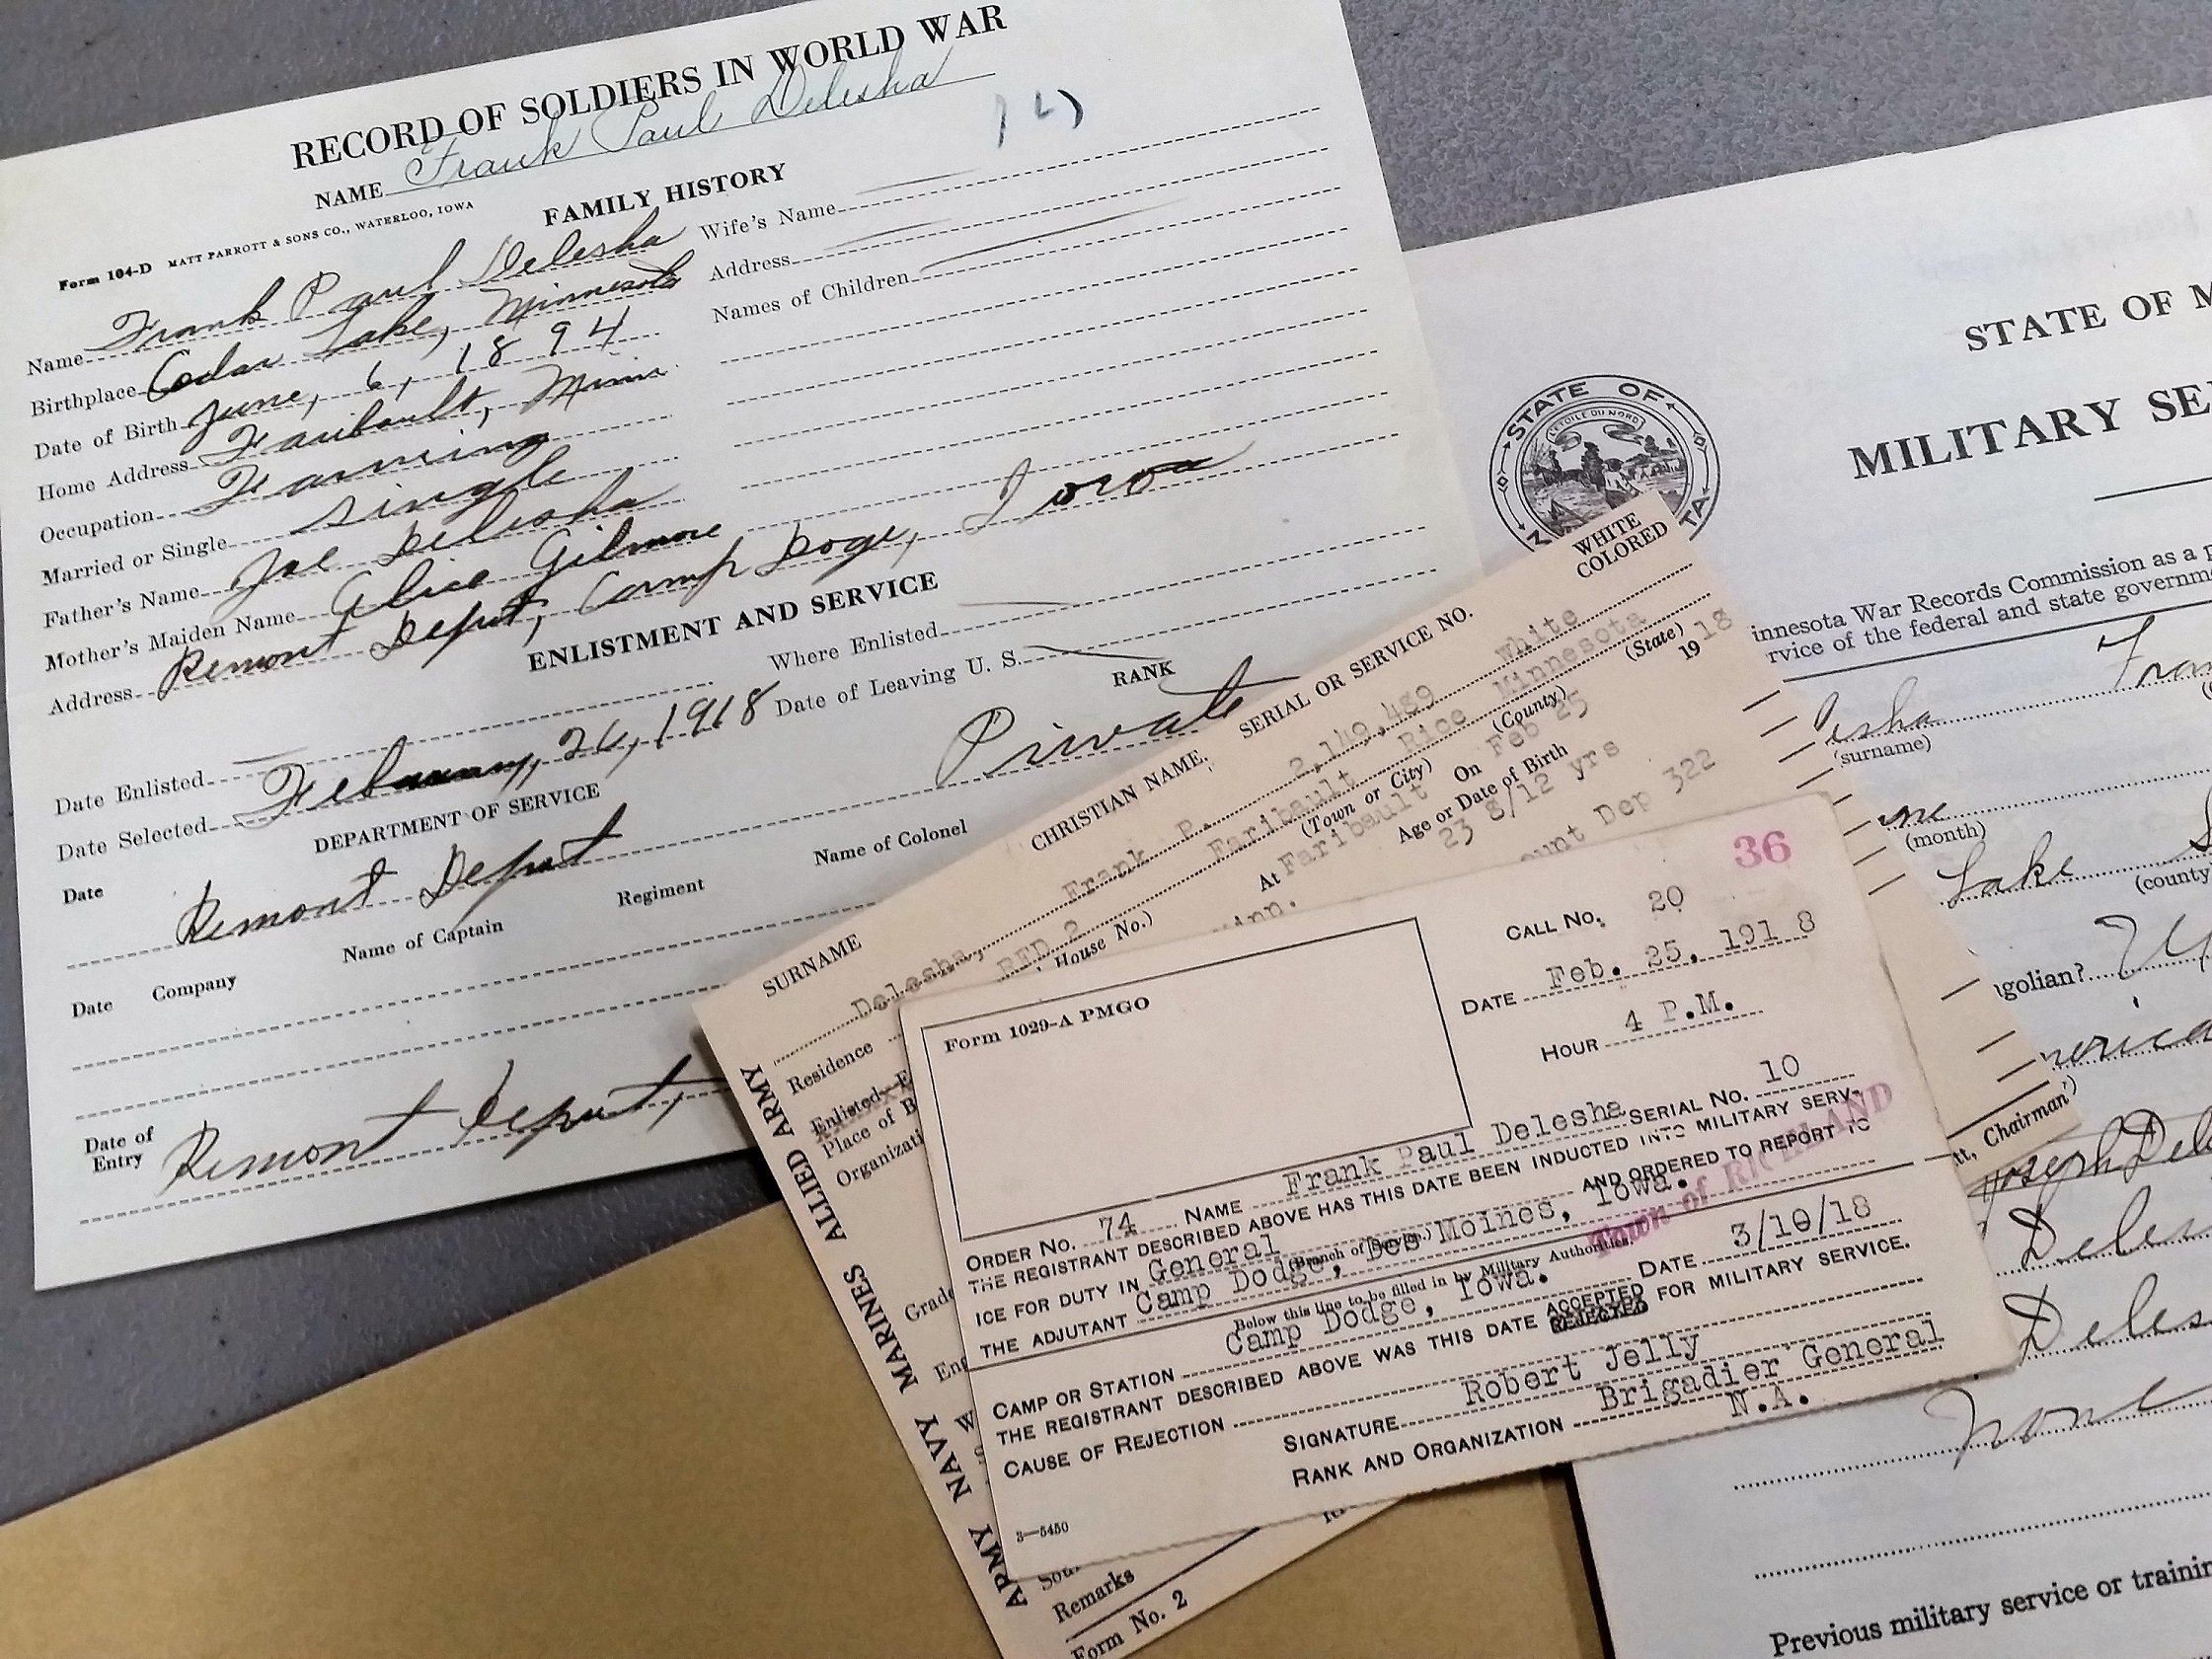 RECORD OF SOLDIERS IN WORLD WAR
NAME Frank Paul Delesha
Form 104-D MATT PARROTT & SONS CO., WATERLOO, IOWA
FAMILY HISTORY
Name Frank Paul Delesha
Birthplace Cedar Lake, Minnesota
Date of Birth June, 6, 1894
Home Address Faribault, Minn.
Occupation Farming
Married or Single single
Father's Name Joe Delesha
Mother's Maiden Name Alice Gilmore
Address Remont Deput, Camp Doge, Iowa
Wife's Name
Address
Names of Children
ENLISTMENT AND SERVICE
Date Enlisted
Where Enlisted
Date Selected February, 26, 1918
Date of Leaving U. S.
DEPARTMENT OF SERVICE
RANK
Private
Date
Remont Deput
Name of Captain
Regiment
Name of Colonel
Date Company
Date of Entry
Remont Deput,
WHITE
COLORED
SURNAME CHRISTIAN NAME. SERIAL OR SERVICE NO.
Delesha, Frank P. 2,149,489 White
Residence RFD 2 Faribault Rice Minnesota
House No.) (Town or City) (County) (State)
At Faribault On Feb 25 19 18
Place of B
Minn. Age or Date of Birth 23 8/12 yrs
Organizati
ount Dep 322
Grade
Remarks
Form No. 2
ARMY NAVY MARINES ALLIED ARMY
tt, Chairman)
Form 1029-A PMGO
36
CALL NO. 20
DATE Feb. 25, 1918
HOUR 4 P.M.
ORDER NO. 74 NAME Frank Paul Delesha SERIAL NO. 10
THE REGISTRANT DESCRIBED ABOVE HAS THIS DATE BEEN INDUCTED INTO MILITARY SERV-
ICE FOR DUTY IN General AND ORDERED TO REPORT TO
(Branch of Service.)
THE ADJUTANT Camp Dodge, Des Moines, Iowa.
Town of RICHLAND
Below this line to be filled in by Military Authorities.
CAMP OR STATION Camp Dodge, Iowa. DATE 3/10/18
THE REGISTRANT DESCRIBED ABOVE WAS THIS DATE ACCEPTED REJECTED FOR MILITARY SERVICE.
CAUSE OF REJECTION
SIGNATURE Robert Jelly
RANK AND ORGANIZATION Brigadier General
N.A.
3—5450
STATE OF M
MILITARY SE
STATE OF
L'ETOILE DU NORD
TA
innesota War Records Commission as a p
rvice of the federal and state governm
Fran
esha
(surname)
(month)
Lake
(county
golian?
merica
Joseph Del
Dele
Deles
None
Previous military service or trainin